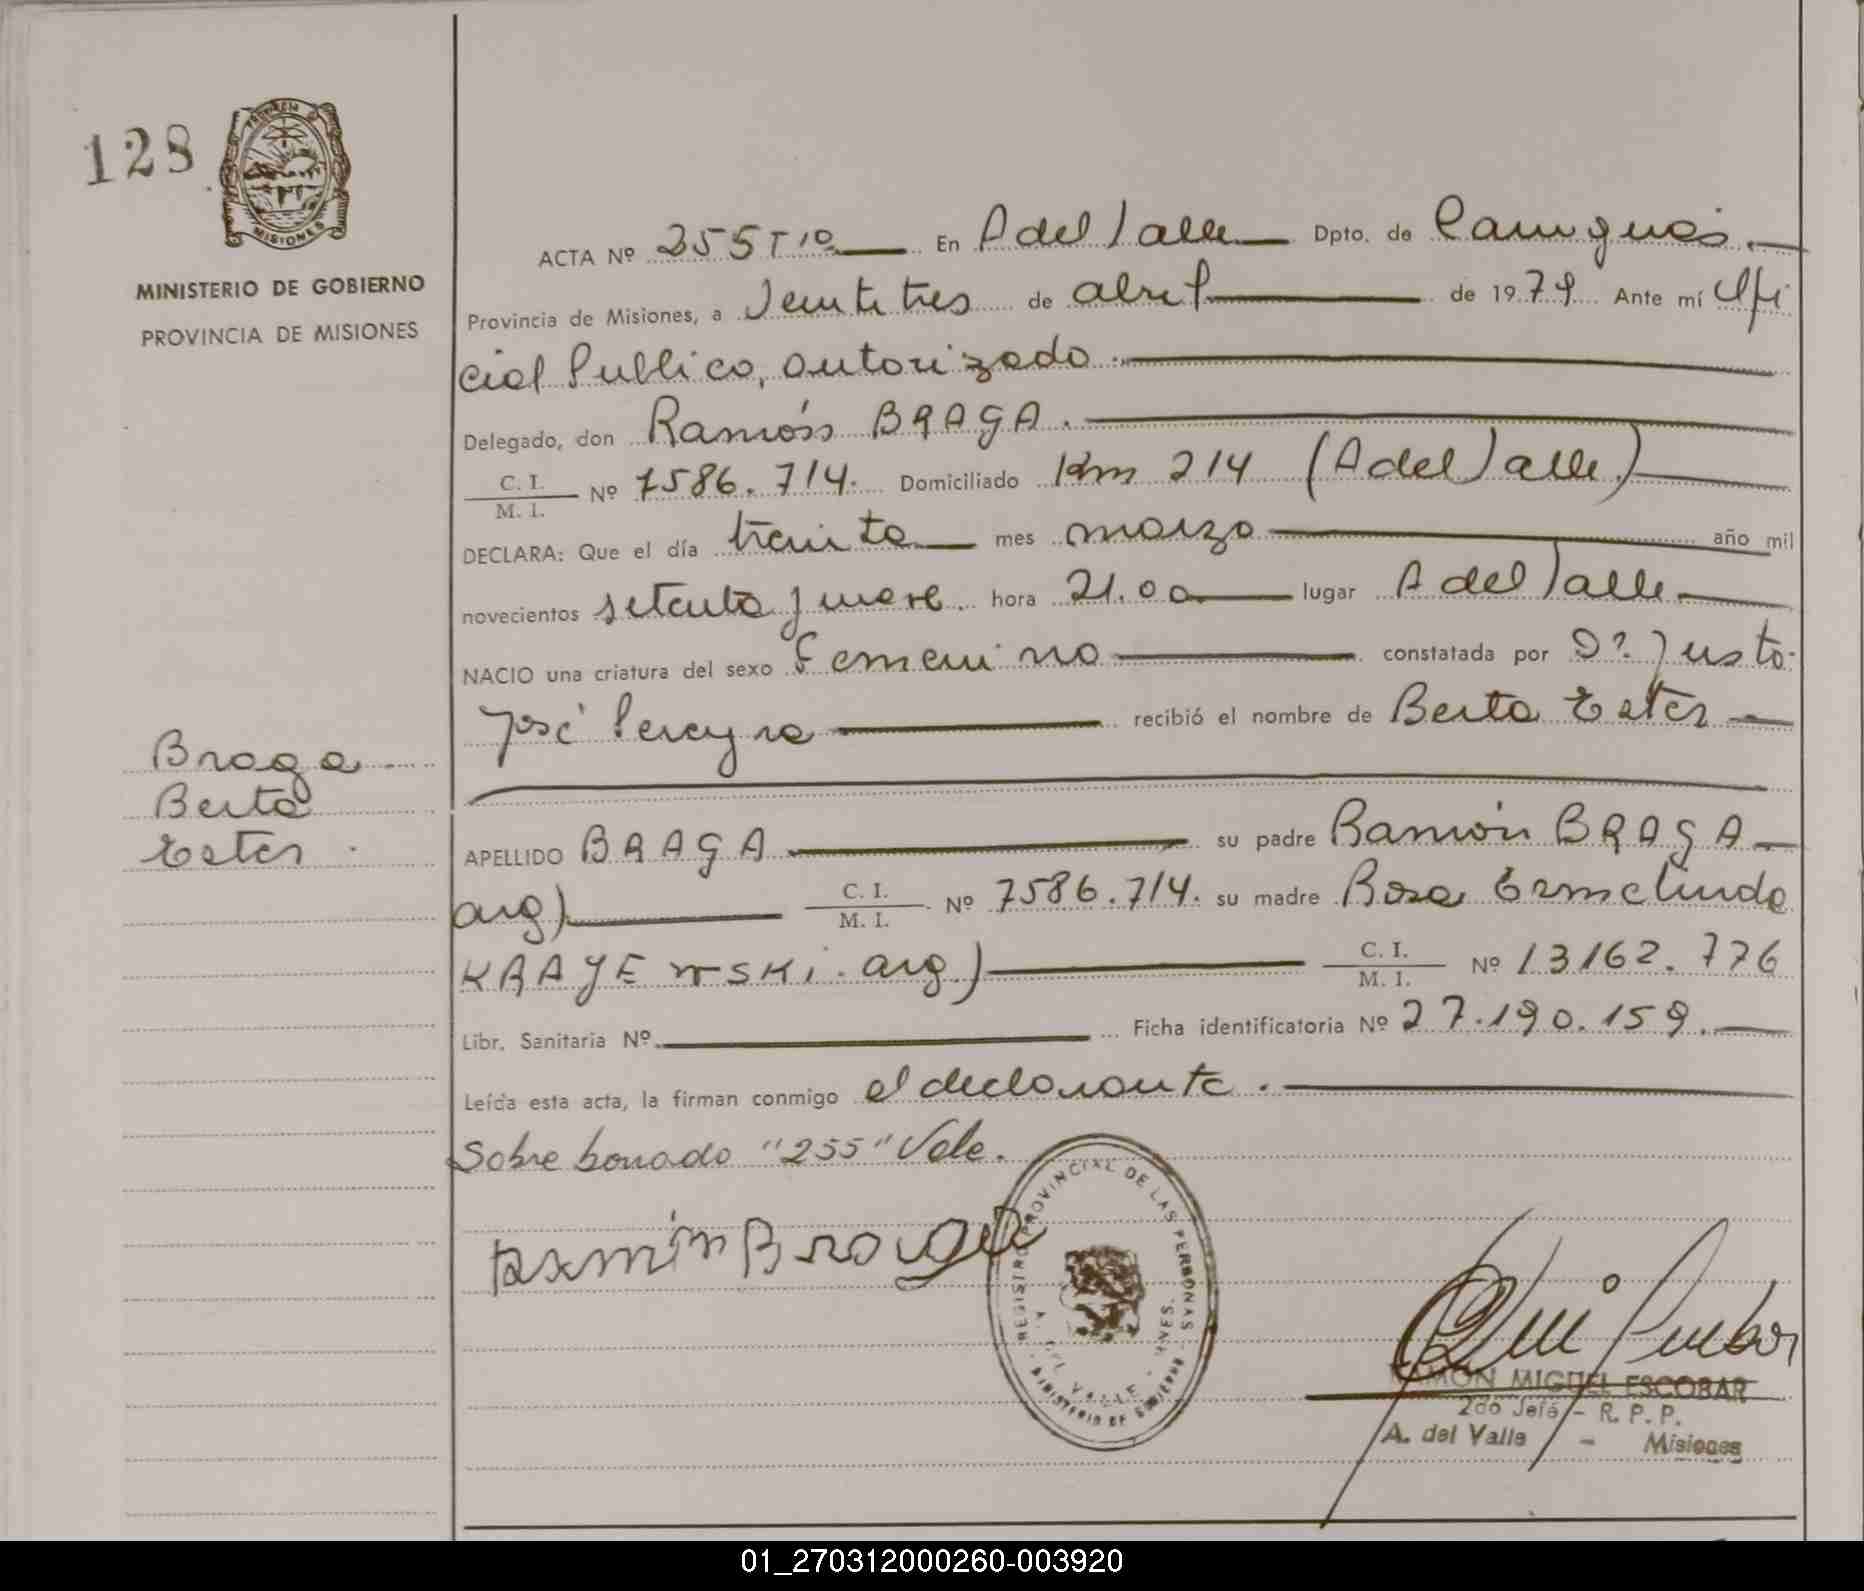 128
PROVINCIA
MISIONES
MINISTERIO DE GOBIERNO
PROVINCIA DE MISIONES
ACTA Nº 255 Tº En A del Valle Dpto. de Cainguás.
Provincia de Misiones, a Veintitres de abril de 1979 Ante mí Ofi
cial Publico, autorizado.
Delegado, don Ramón BRAGA.
C. I.
M. I. Nº 7586.714. Domiciliado Km 214 (A del Valle)
DECLARA: Que el día treinta mes marzo año mil
novecientos setenta y nueve. hora 21.00 lugar A del Valle
NACIO una criatura del sexo Femenino constatada por Dº Justo
José Pereyra recibió el nombre de Berta Ester
Braga
Berta
Ester.
APELLIDO BRAGA su padre Ramón BRAGA
arg) C. I.
M. I. Nº 7586.714. su madre Rosa Ermelinda
KRAYEWSKI. arg) C. I.
M. I. Nº 13162.776
Libr. Sanitaria Nº Ficha identificatoria Nº 27.190.159.
Leída esta acta, la firman conmigo el declarante.
Sobre borrado "255" Vale.
Ramón Braga
REGISTRO PROVINCIAL DE LAS PERSONAS
A. DEL VALLE - MNES.
MINISTERIO DE GOBIERNO
RAMON MIGUEL ESCOBAR
2do Jefe - R. P. P.
A. del Valle - Misiones
01_270312000260-003920